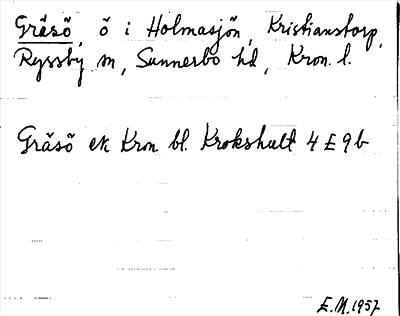 Gräsö, ö i Holmasjön, Kristianstorp,
Ryssby sn, Sunnerbo hd, Kron. l.
Gräsö ek Kron bl. Krokshult 4 E 9 b
E.M. 1957